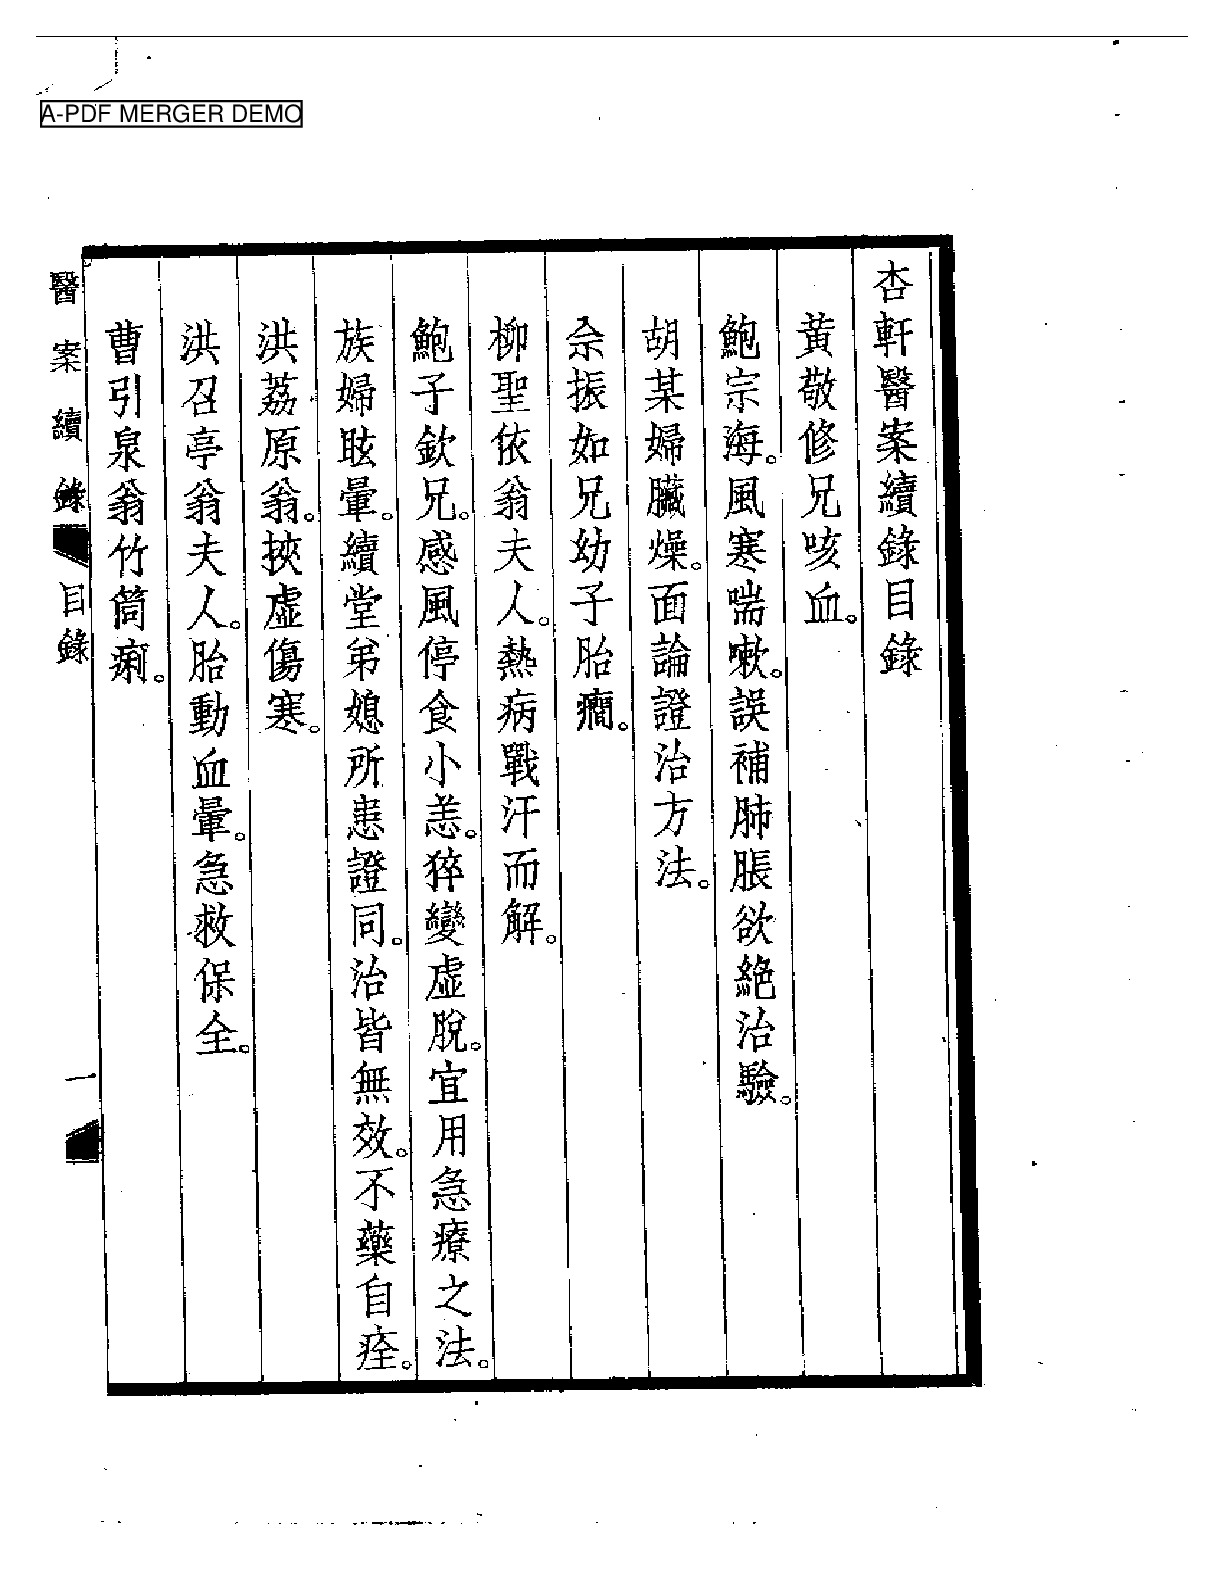 A-PDF MERGER DEMO
杏軒醫案續錄目錄
黃敬修兄咳血。
鮑宗海。風寒喘嗽。誤補肺脹欲絕治驗。
胡某婦臟燥。面論證治方法。
佘振如兄幼子胎癇。
柳聖依翁夫人。熱病戰汗而解。
鮑子欽兄。感風停食小恙。猝變虛脫。宜用急療之法。
族婦眩暈。續堂弟媳所患證同。治皆無效。不藥自痊。
洪荔原翁。挾虛傷寒。
洪召亭翁夫人。胎動血暈。急救保全。
曹引泉翁竹筒痢。
醫案續錄 目錄 一